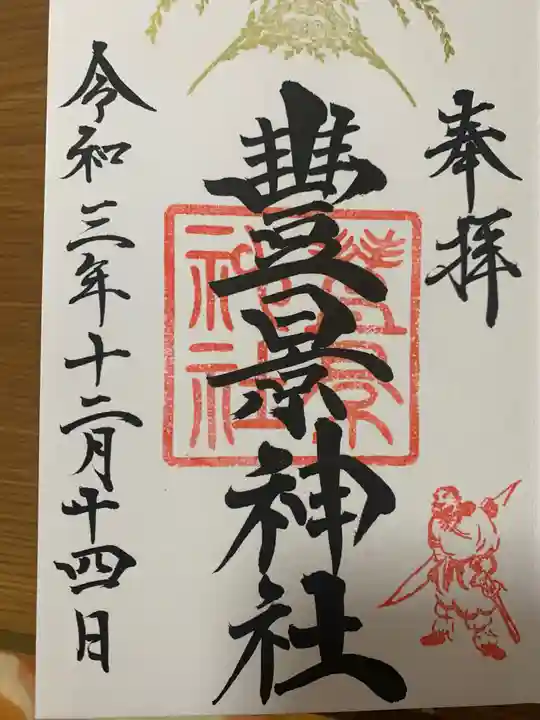 奉拝
豊景神社
令和三年十二月十四日